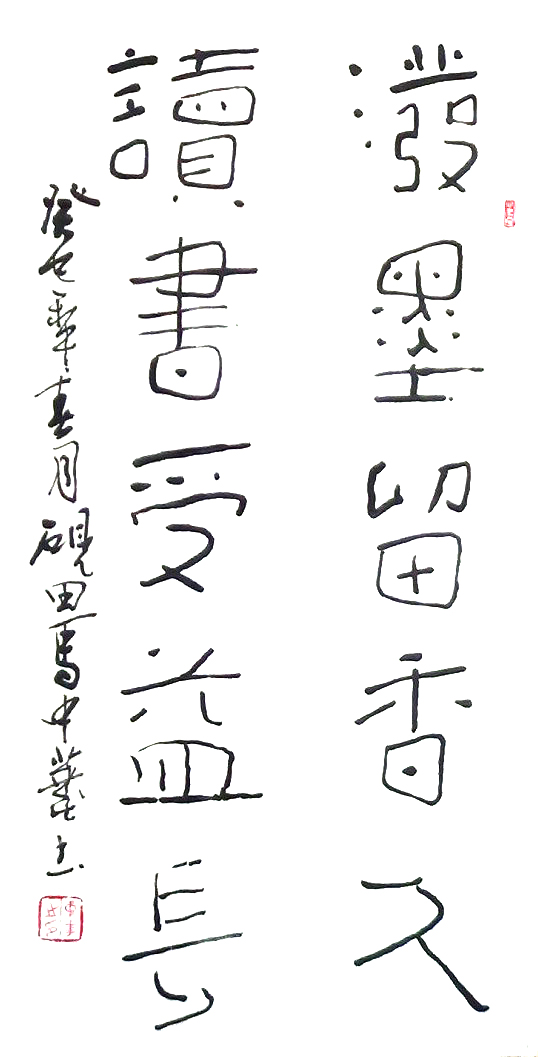 潑墨留香久
讀書受益長
癸巳春月硯田馬中書